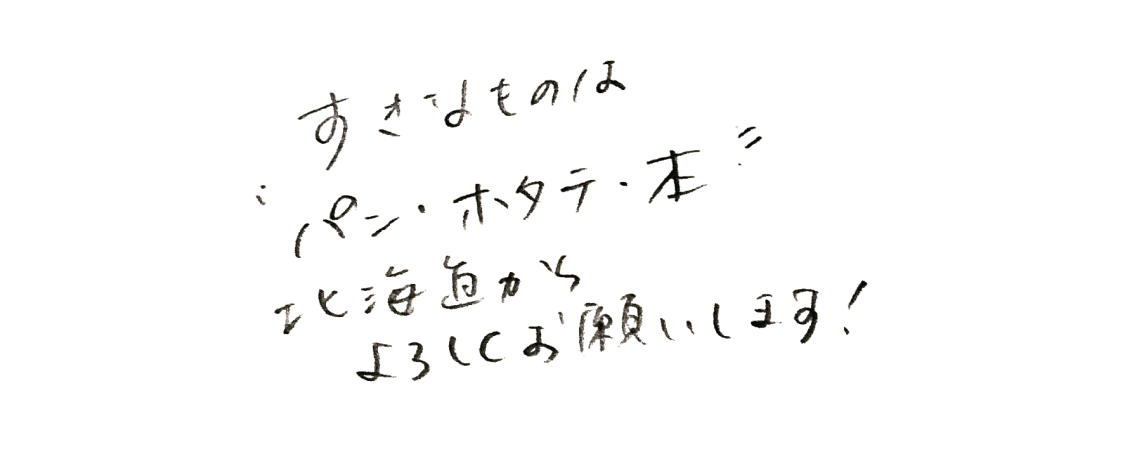 すきなものは
"パン・ホタテ・本"
北海道から
よろしくお願いします!